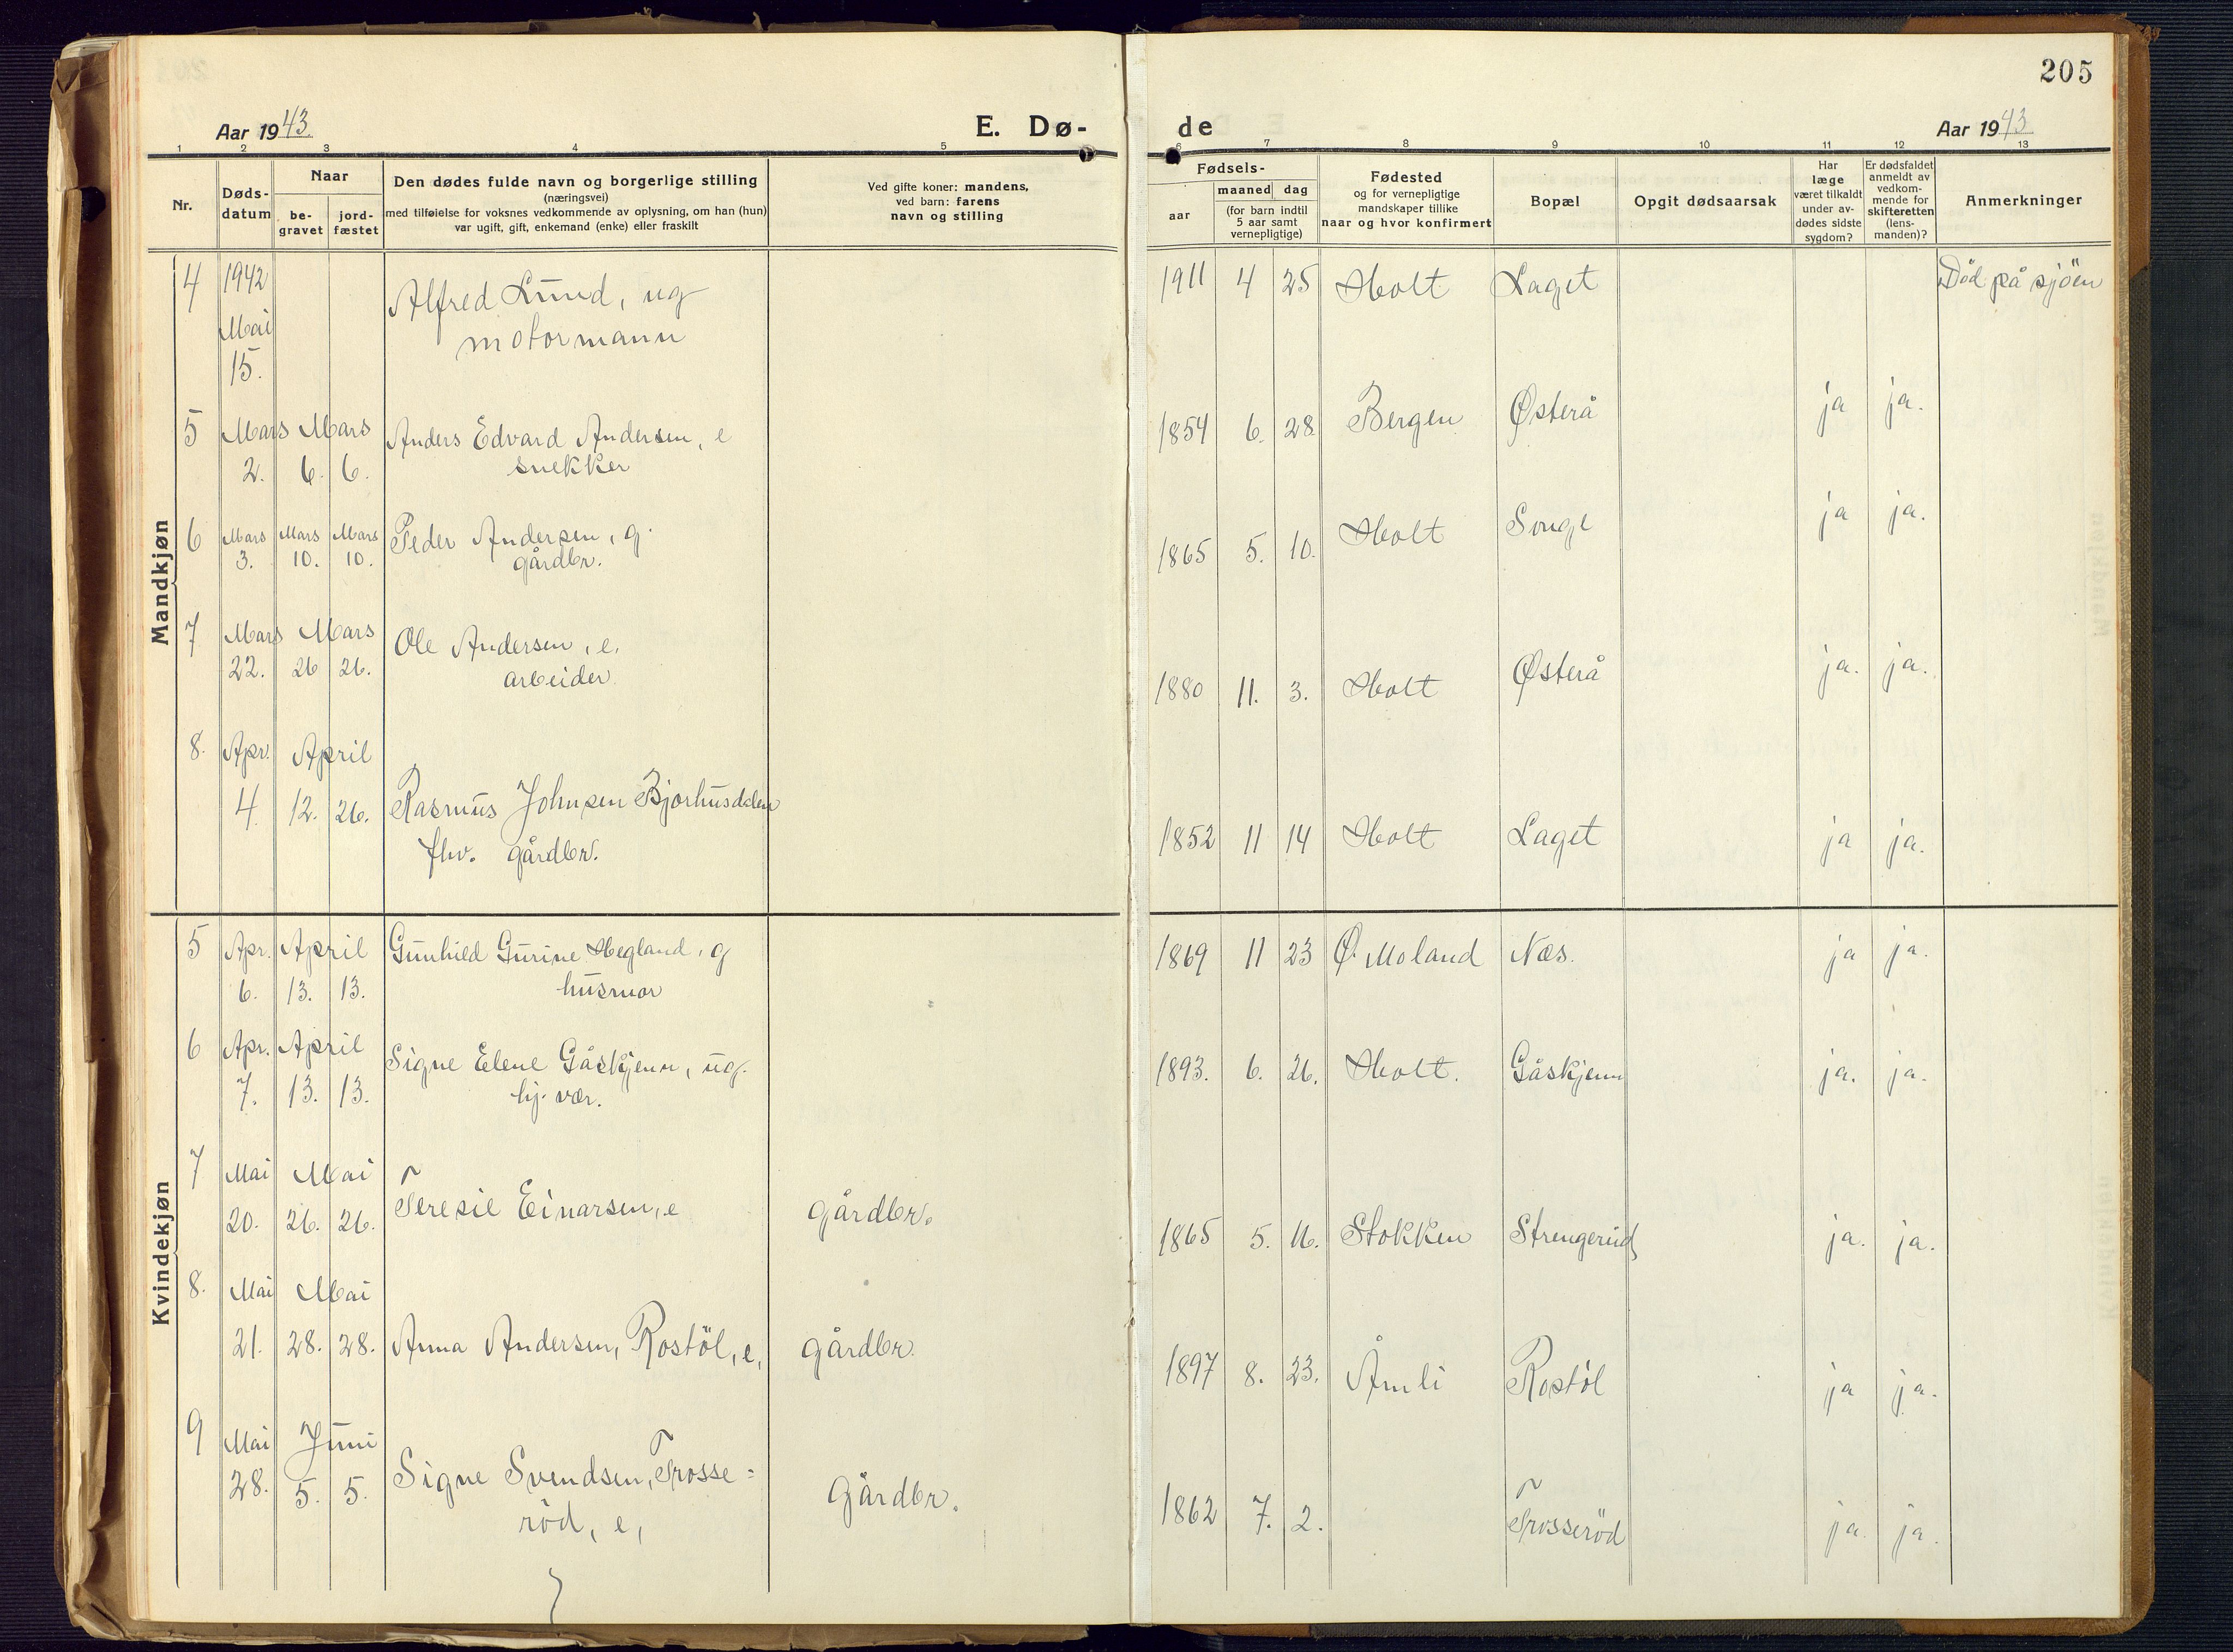 205
Aar 1943
E. Dø-
de
Aar 1943
1 2 3 4 5 6 7 8 9 10 11 12 13
Nr.
Døds-
datum
Naar
be-
gravet
jord-
fæstet
Den dødes fulde navn og borgerlige stilling
(næringsvei)
med tilføielse for voksnes vedkommende av oplysning, om han (hun)
var ugift, gift, enkemand (enke) eller fraskilt
Ved gifte koner: mandens,
ved barn: farens
navn og stilling
Fødsels-
aar
maaned dag
(for barn indtil
5 aar samt
vernepligtige)
Fødested
og for vernepligtige
mandskaper tillike
naar og hvor konfirmert
Bopæl
Opgit dødsaarsak
Har
læge
været tilkaldt
under av-
dødes sidste
sygdom?
Er dødsfaldet
anmeldt av
vedkom-
mende for
skifteretten
(lens-
manden)?
Anmerkninger
Mandkjøn
4 1942 Alfred Lund, ug 1911 4 25 Holt Laget Död på sjöen
Mai motormann
15.
5 Mars Mars Anders Edvard Andersen, e 1854 6. 28 Bergen Østerå ja ja.
2. 6. 6. snekker
6 Mars Mars Mars Peder Andersen, g. 1865 5. 10. Holt Songe ja ja.
3. 10. 10. gårdbr.
7 Mars Mars Ole Andersen, e. 1880 11. 3. Holt Østerå ja. ja.
22. 26 26. arbeider
8. Apr. April
4. 12. 26. Rasmus Johnsen Bjorhusdalen 1852 11 14 Holt Laget ja ja.
fhv. gårdbr.
Kvindekjøn
5 Apr. April Gunhild Gurine Hegland, g 1869 11 23 Ø. Moland Næs. ja ja.
6. 13. 13. husmor
6 Apr. April Signe Elene Gåskjenn, ug. 1893. 6. 26. Holt. Gåskjenn ja. ja.
7. 13. 13. hj. vær.
7 Mai Mai
20. 26. 26. Teresie Einarsen, e gårdbr. 1865 5. 16. Stokken Strengerud ja. ja.
8. Mai Mai
21. 28. 28. Anna Andersen, Rostöl, e, gårdbr. 1897 8. 23. Åmli Rostöl ja ja.
9 Mai Juni
28. 5. 5. Signe Svendsen, Trosse= gårdbr. 1862 7. 2. Trosseröd ja. ja.
röd, e,